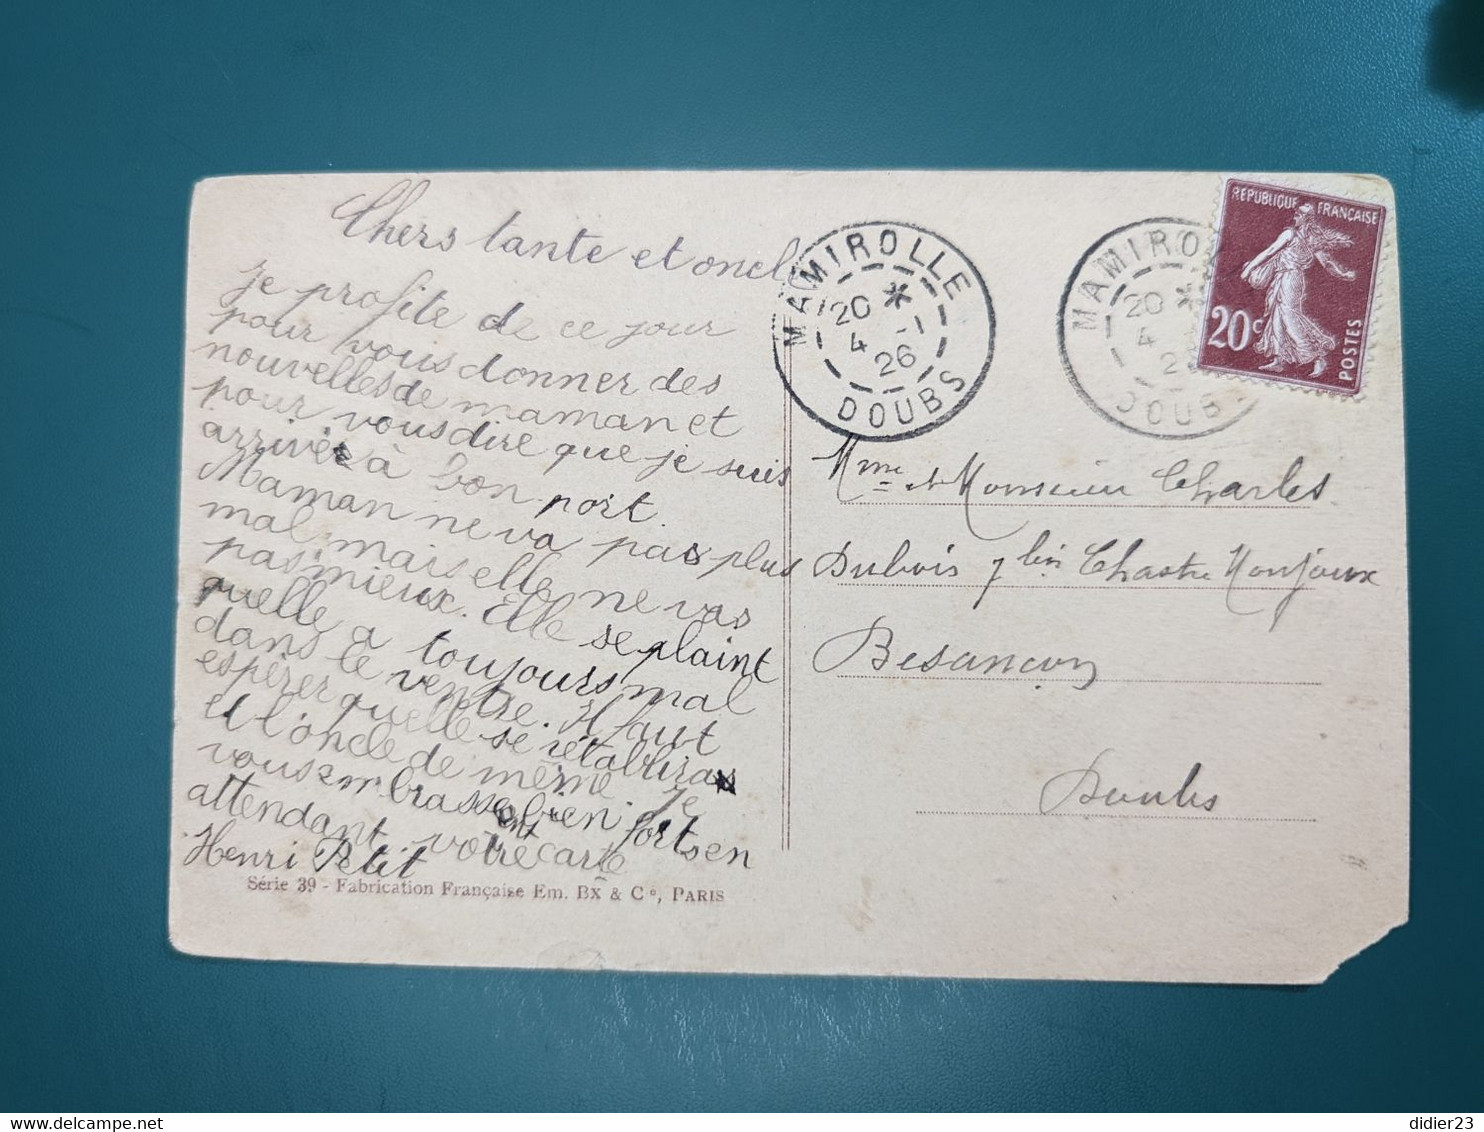 Chers tante et oncl
Je profite de ce jour
pour vous donner des
nouvelles de maman et
pour vous dire que je suis
arrivé à bon port.
Maman ne va pas plus
mal mais elle ne vas
pas mieux. Elle se plaint
quelle a toujours mal
dans le ventre. Il faut
espérer quelle se rétablira
et l'oncle de même Je
vous embrasse bien fort en
attendant votre carte
Henri Petit
Série 39 - Fabrication Française Em. BX & Cº, PARIS
MAMIROLLE
20 *
4 -1
26
DOUBS
MAMIRO
20 *
4
2
DOUB
REPUBLIQUE FRANÇAISE
20c
POSTES
Mme et Monsieur Charles
Dubois 7 bis
Besançon
Doubs
didier23